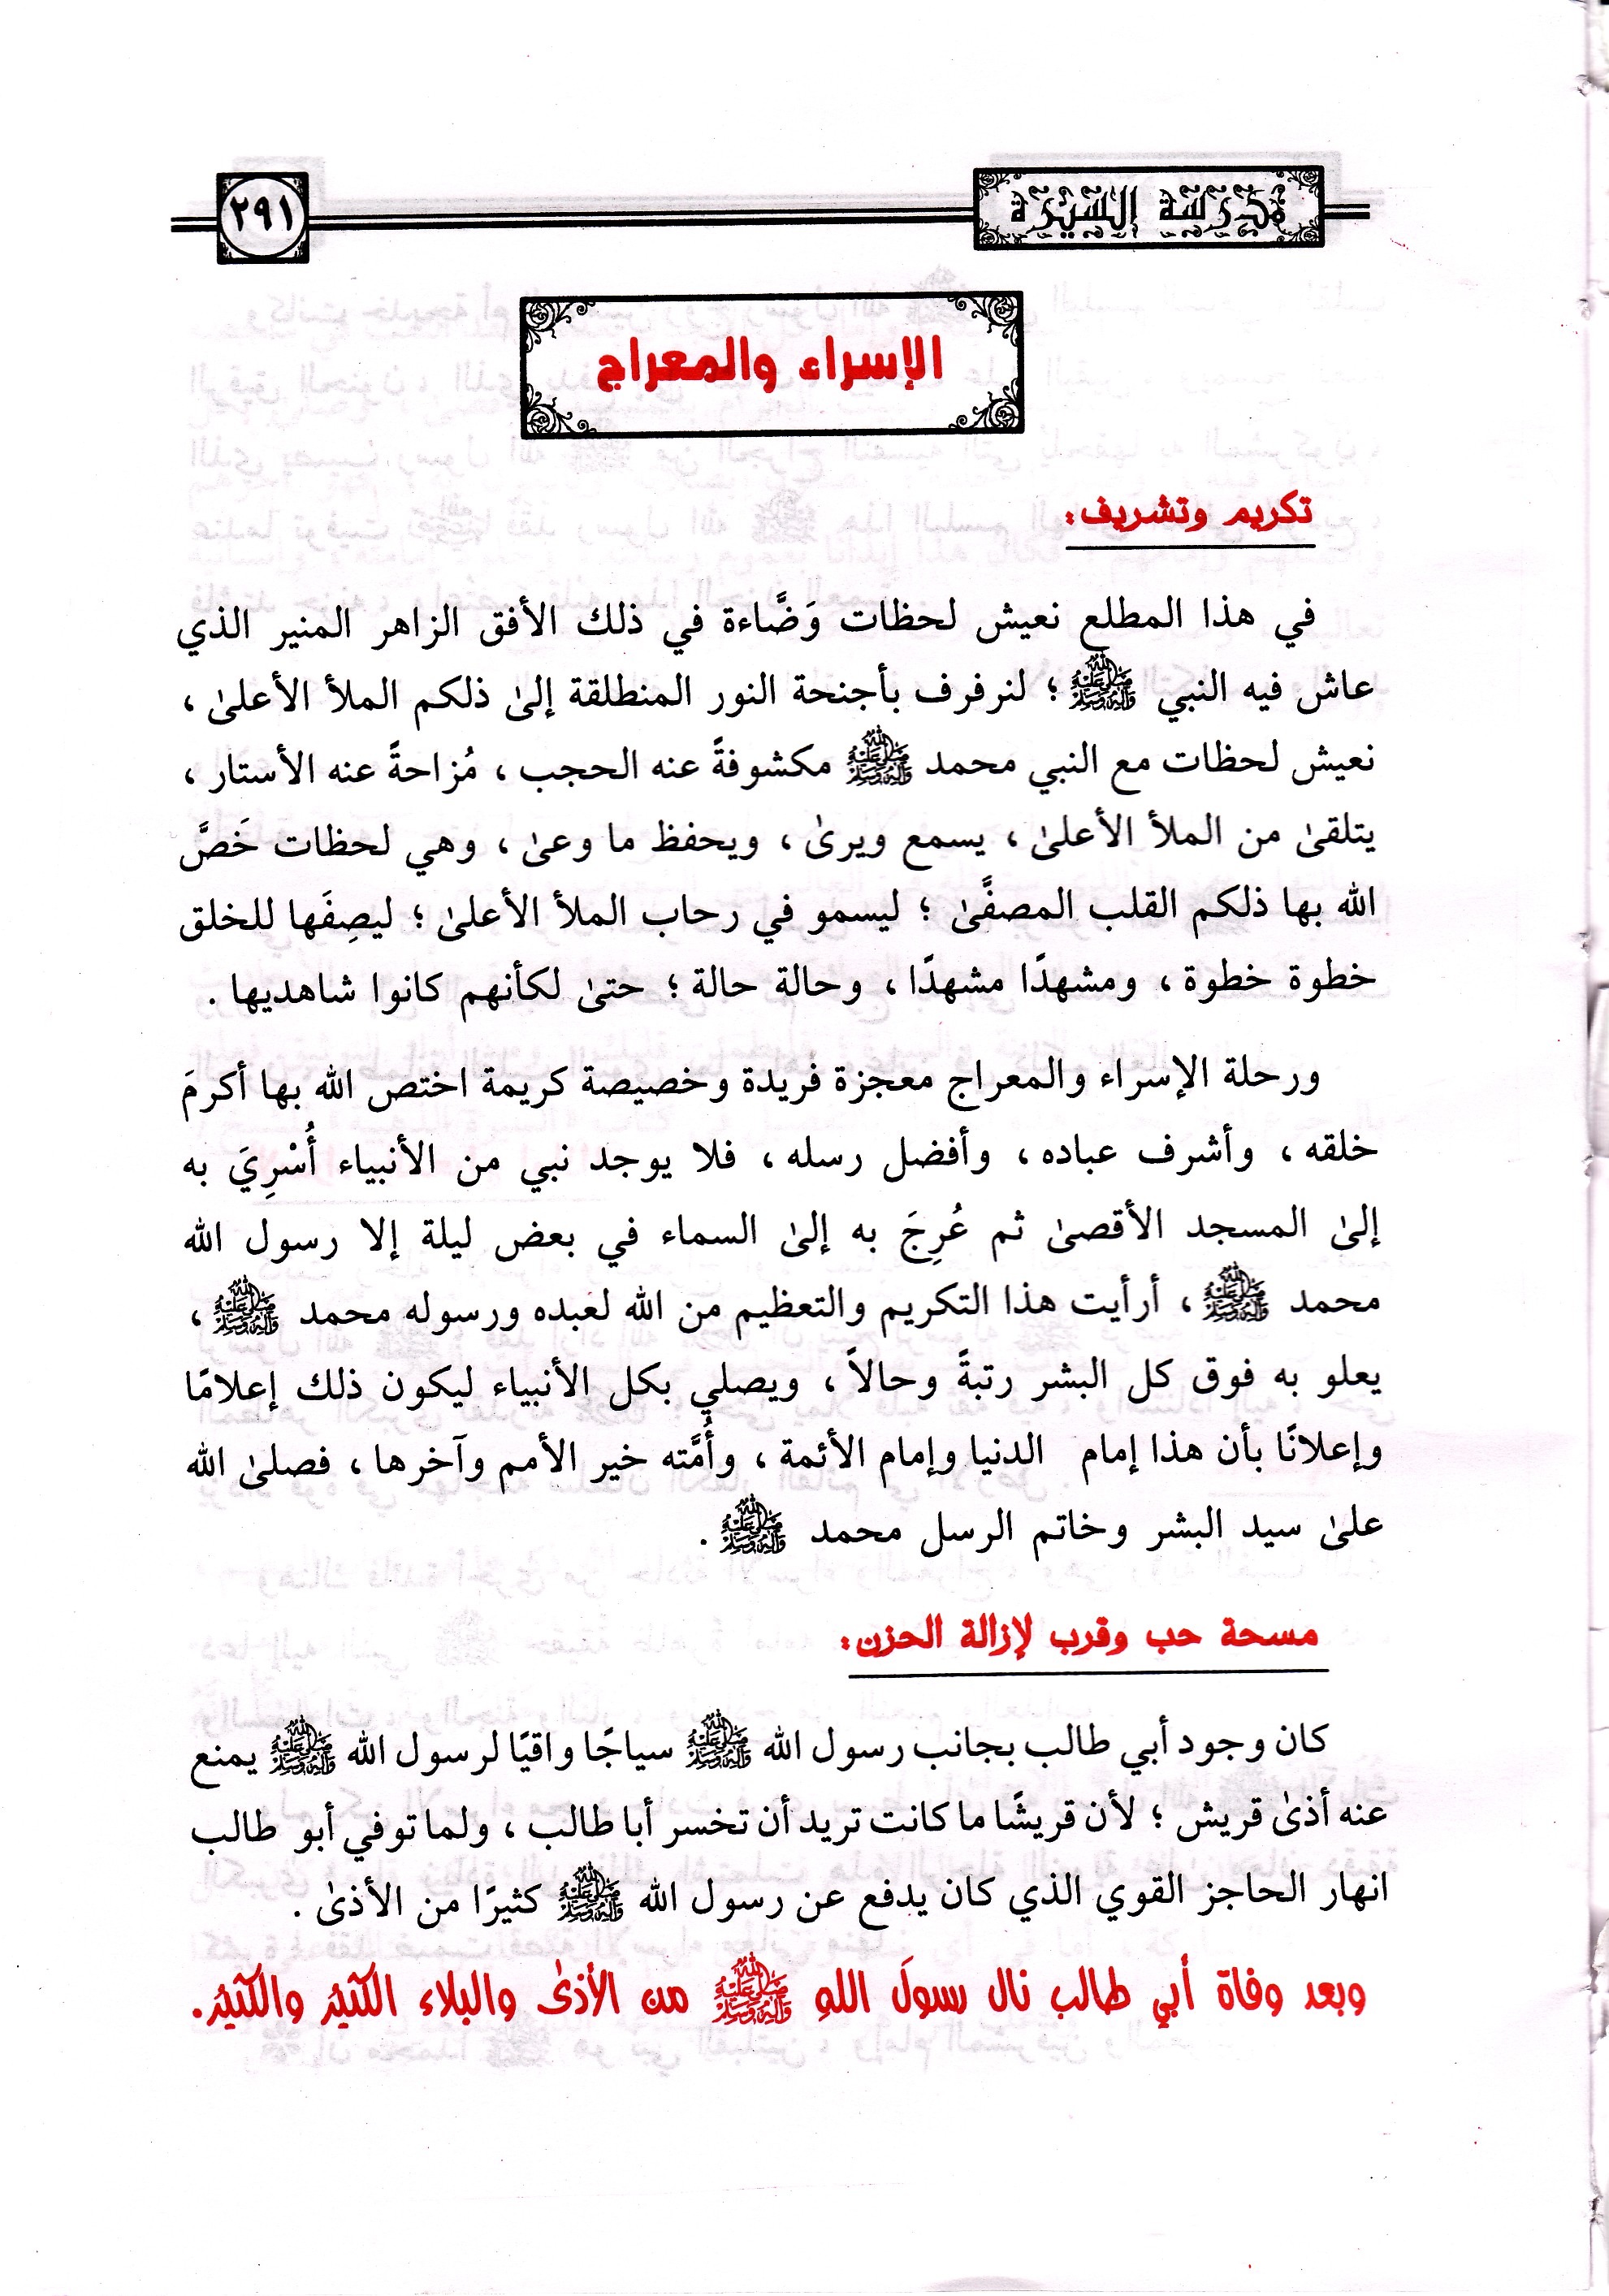 مدرسة السيرة
٢٩١
الإسراء والمعراج
تكريم وتشريف:
في هذا المطلع نعيش لحظات وَضَّاءة في ذلك الأفق الزاهر المنير الذي
عاش فيه النبي ﷺ ؛ لنرفرف بأجنحة النور المنطلقة إلىٰ ذلكم الملأ الأعلىٰ ،
نعيش لحظات مع النبي محمد ﷺ مكشوفةً عنه الحجب ، مُزاحةً عنه الأستار ،
يتلقىٰ من الملأ الأعلىٰ ، يسمع ويرىٰ ، ويحفظ ما وعىٰ ، وهي لحظات خَصَّ
الله بها ذلكم القلب المصفَّىٰ ؛ ليسمو في رحاب الملأ الأعلىٰ ؛ ليصِفَها للخلق
خطوة خطوة ، ومشهدًا مشهدًا ، وحالة حالة ؛ حتىٰ لكأنهم كانوا شاهديها .
ورحلة الإسراء والمعراج معجزة فريدة وخصيصة كريمة اختص الله بها أكرمَ
خلقه ، وأشرف عباده ، وأفضل رسله ، فلا يوجد نبي من الأنبياء أُسْرِيَ به
إلىٰ المسجد الأقصىٰ ثم عُرِجَ به إلىٰ السماء في بعض ليلة إلا رسول الله
محمد ﷺ ، أرأيت هذا التكريم والتعظيم من الله لعبده ورسوله محمد ﷺ ،
يعلو به فوق كل البشر رتبةً وحالاً ، ويصلي بكل الأنبياء ليكون ذلك إعلامًا
وإعلانًا بأن هذا إمام الدنيا وإمام الأئمة ، وأُمَّته خير الأمم وآخرها ، فصلىٰ الله
علىٰ سيد البشر وخاتم الرسل محمد ﷺ .
مسحة حب وقرب لإزالة الحزن:
كان وجود أبي طالب بجانب رسول الله ﷺ سياجًا واقيًا لرسول الله ﷺ يمنع
عنه أذىٰ قريش ؛ لأن قريشًا ما كانت تريد أن تخسر أبا طالب ، ولما توفي أبو طالب
انهار الحاجز القوي الذي كان يدفع عن رسول الله ﷺ كثيرًا من الأذىٰ .
وبعد وفاة أبي طالب نال رسولَ اللهِ ﷺ من الأذىٰ والبلاء الكثيرُ والكثيرُ.